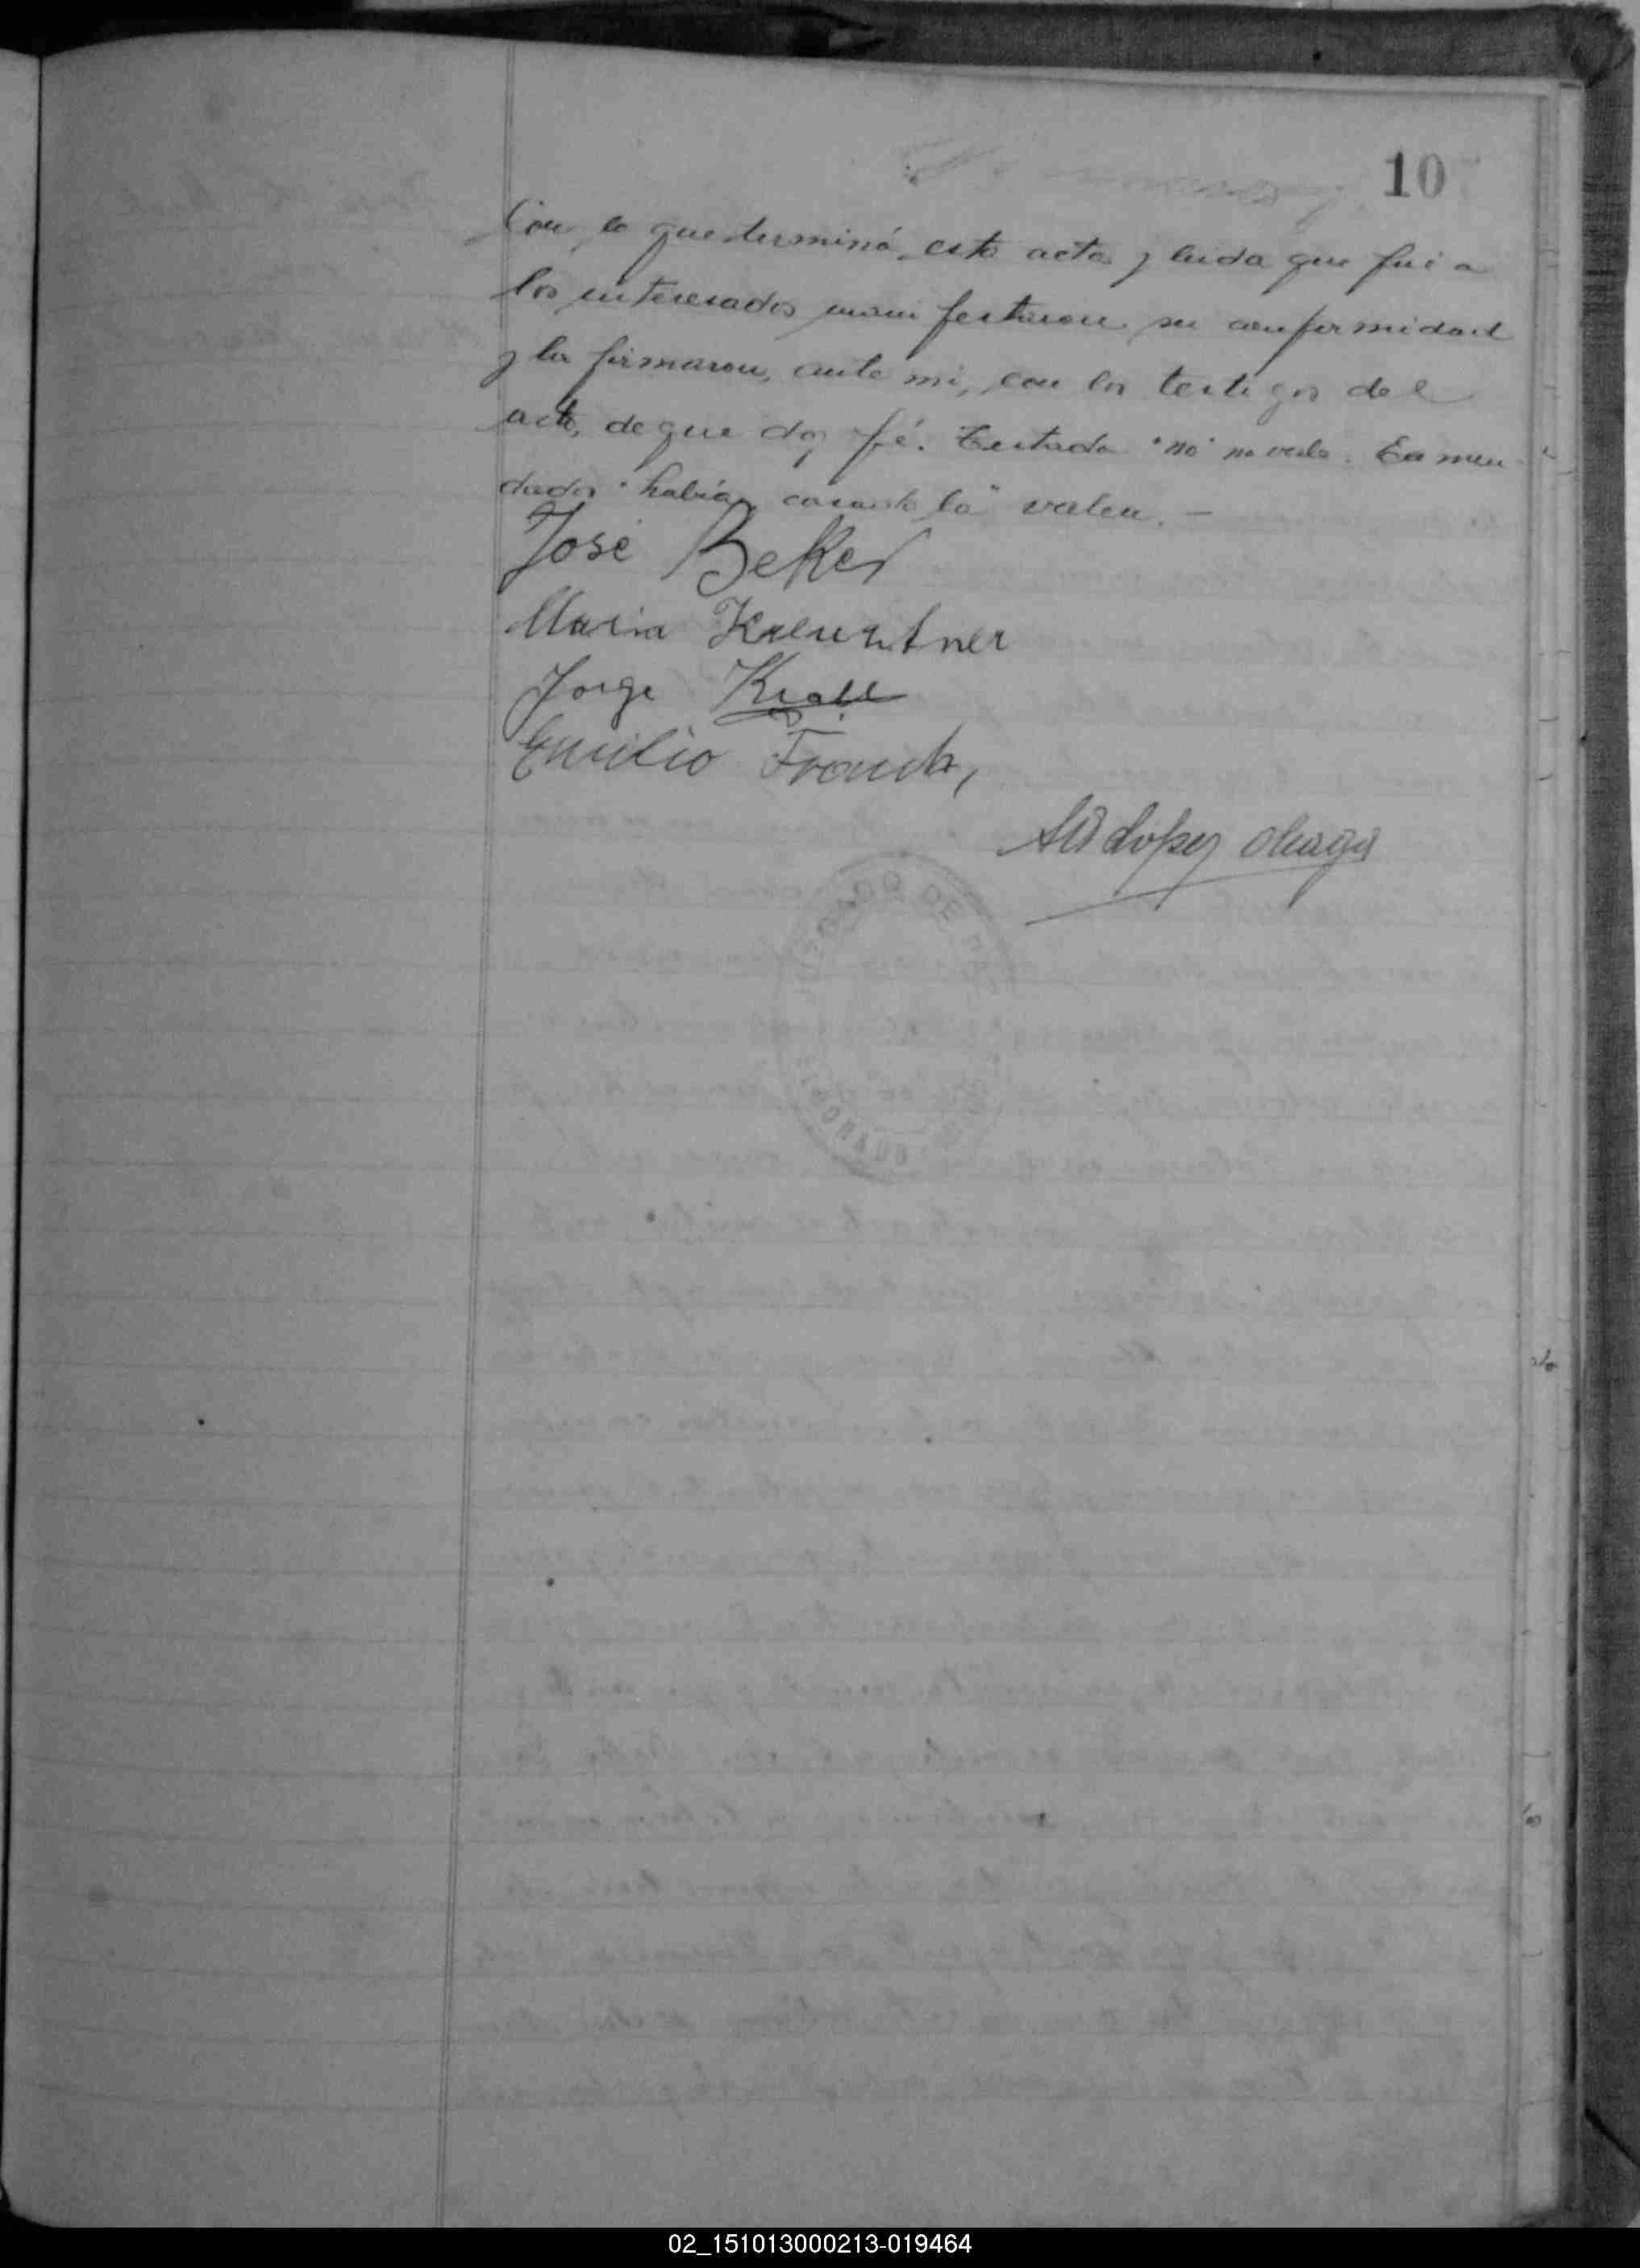 10
Con lo que terminó esta acta y leida que fué a
los interesados manifestaron su conformidad
y la firmaron, ante mi, con los testigos del
acto, de que doy fé. Testado "no" no vale. Enmen-
dados "había, casando la" valen. —
José Beker
Maria
Jorge Krall
Emilio Franck,
Lopez
JUZGADO DE
02_151013000213-019464